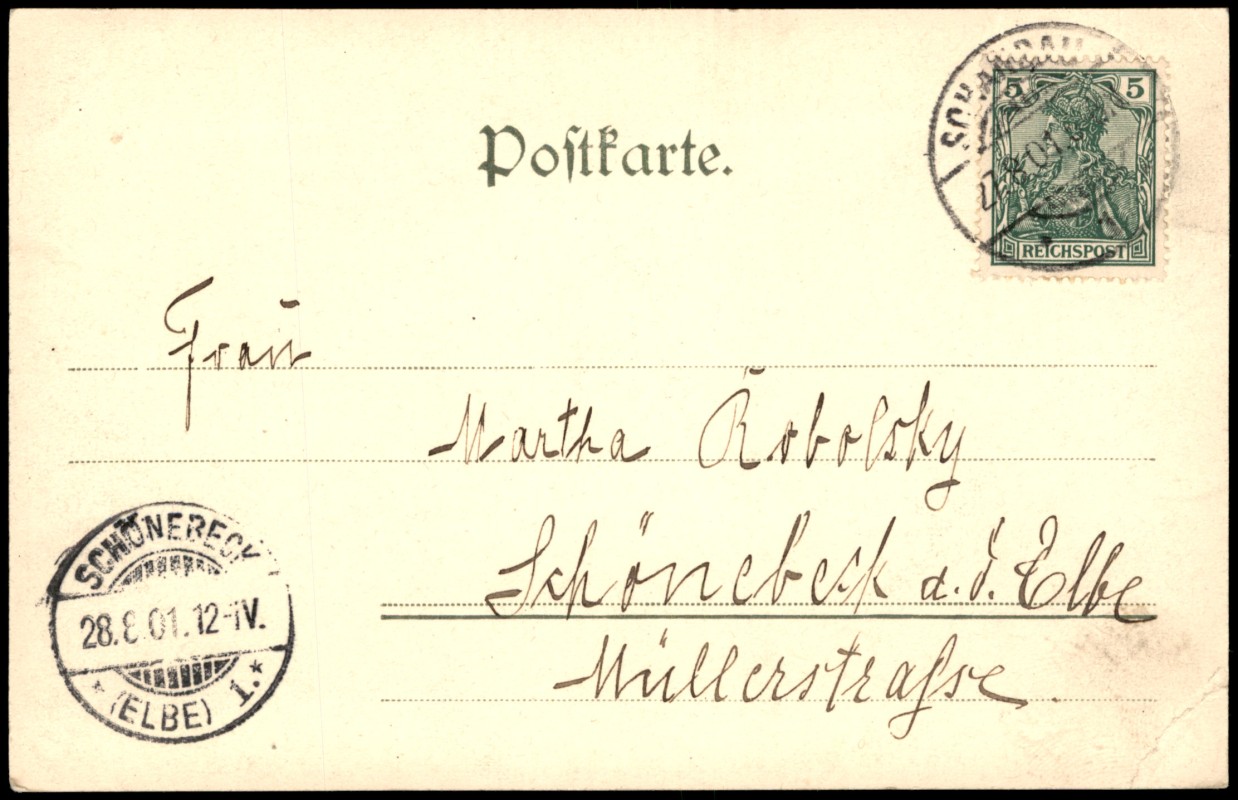 SCHANDAU
27.8.01.
5 5
REICHSPOST
Postkarte.
Frau
Martha Robolsky
Schönebeck a.d. Elbe
Müllerstraße.
SCHÖNEBECK
28.8.01.12-1V.
* (ELBE) 1.*